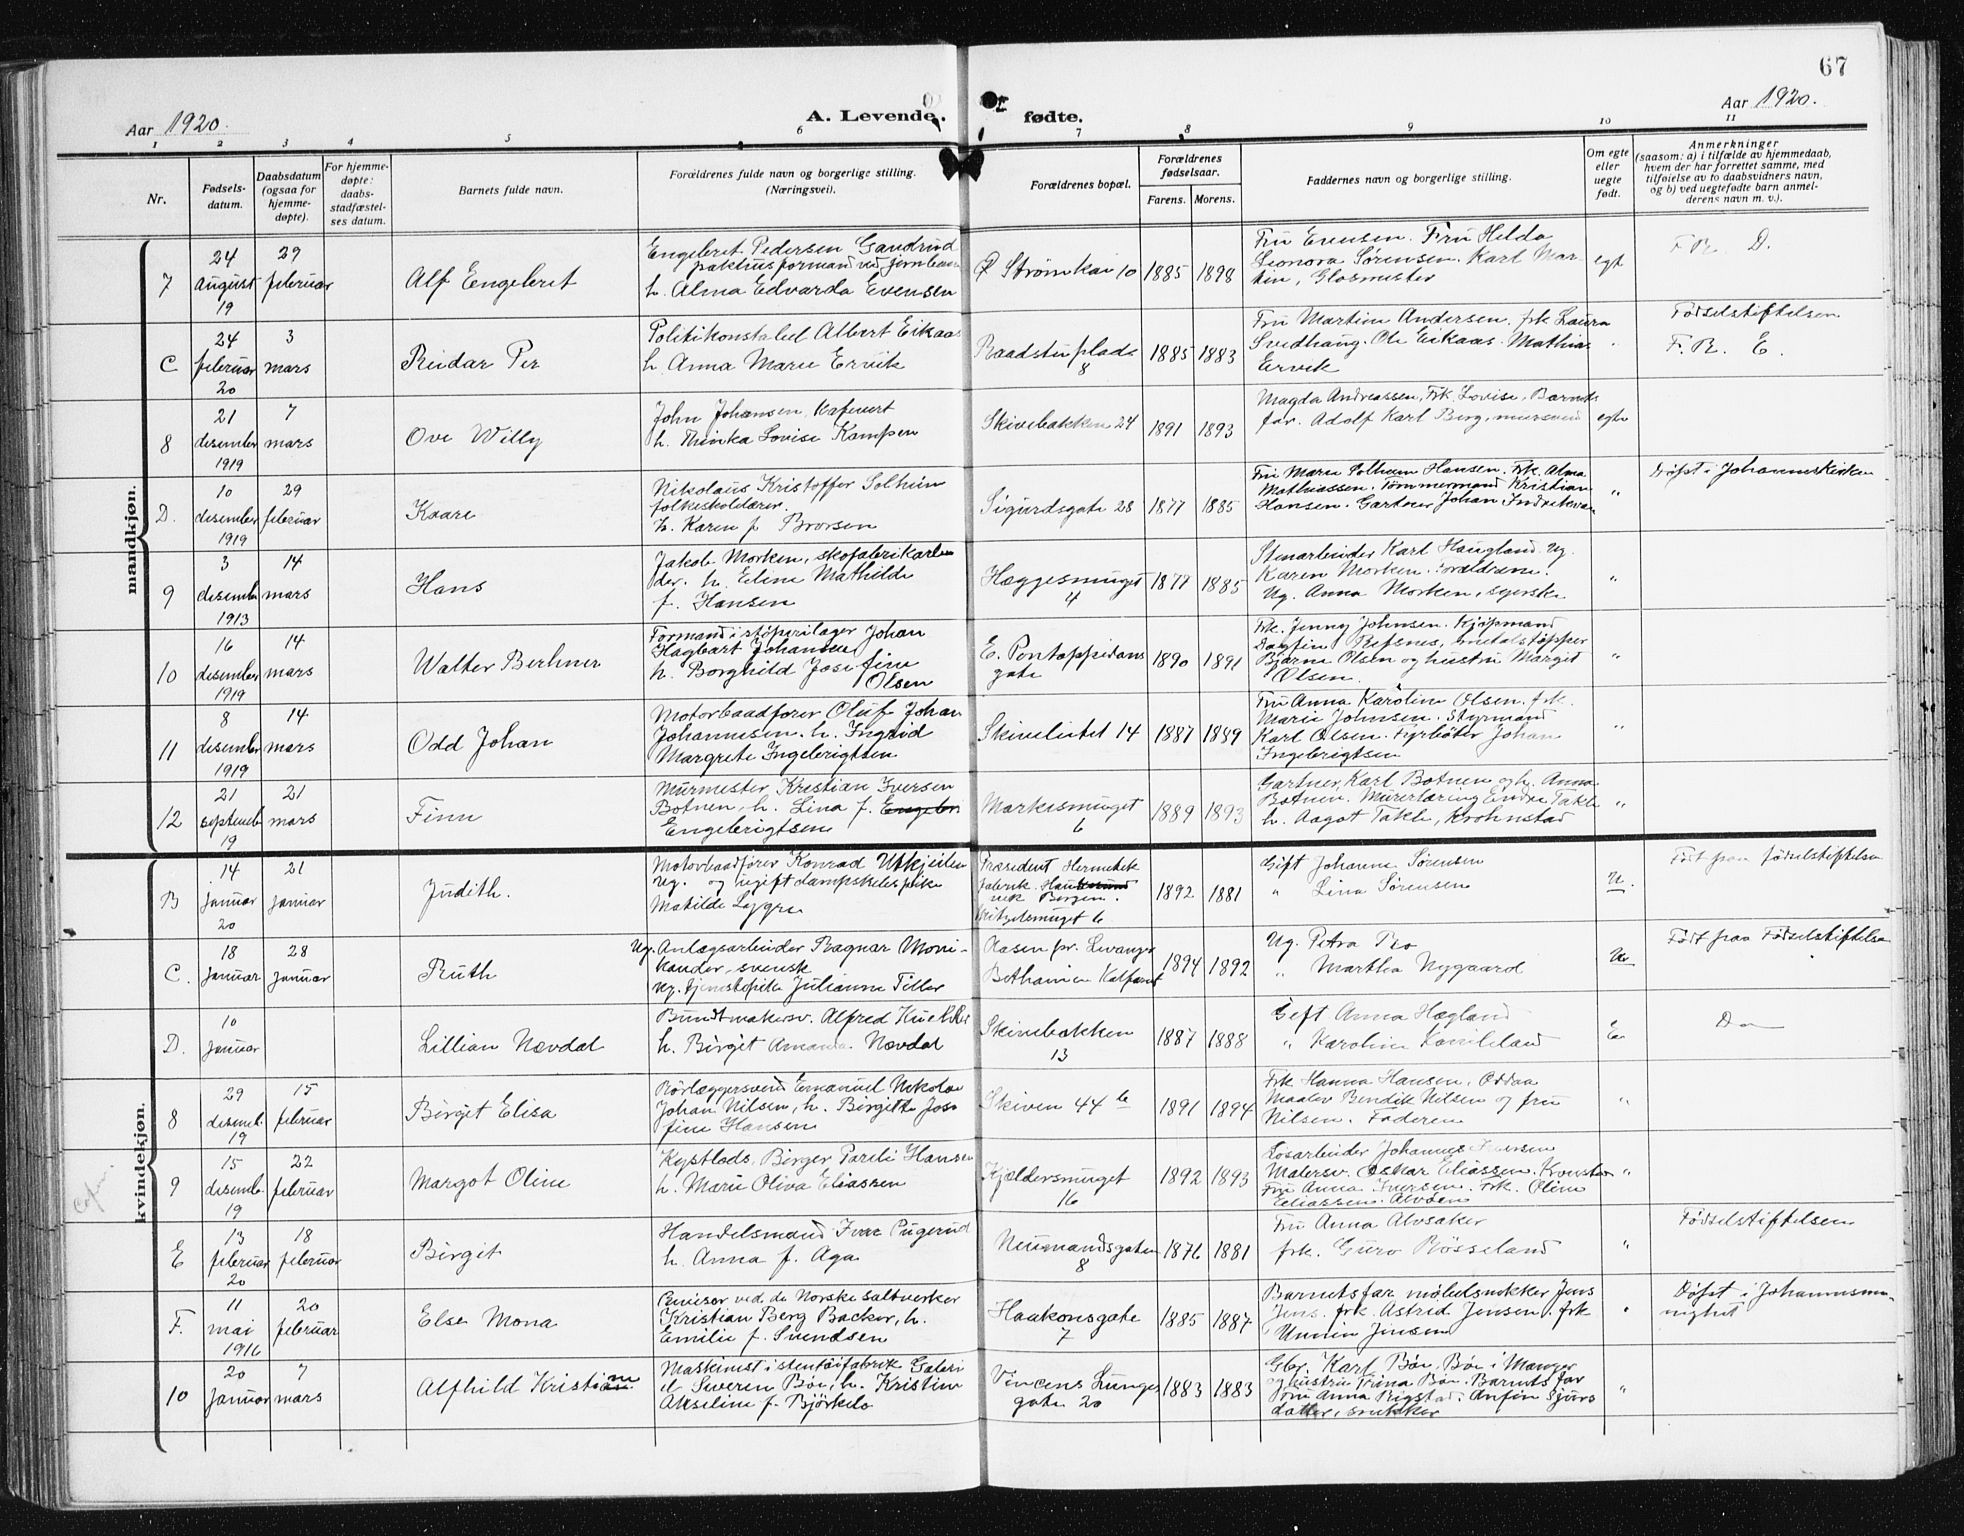 67
Aar 1920.
A. Levende
fødte.
Aar 1920.
1 2 3 4 5 6 7 8 9 10 11
Nr.
Fødsels-
datum.
Daabsdatum
(ogsaa for
hjemme-
døpte).
For hjemme-
døpte:
daabs-
stadfæstel-
ses datum.
Barnets fulde navn.
Forældrenes fulde navn og borgerlige stilling.
(Næringsvei).
Forældrenes bopæl.
Forældrenes
fødselsaar.
Farens. Morens.
Faddernes navn og borgerlige stilling.
Om egte
eller
uegte
født.
Anmerkninger
(saasom: a) i tilfælde av hjemmedaab,
hvem der har forrettet samme, med
tilføielse av to daabsvidners navn,
og b) ved uegtefødte barn anmel-
derens navn m. v.).
mandkjøn.
7
24
august
19
29
februar
Alf Engebret
Engebret Pedersen Gandrud
h. Alma Edvarda Evensen
Strømkai 10
1885 1898
Fru Evensen. Fru Hilda
Leonora Sørensen. Karl Mar-
tin, Glasmester
egt
F. R. D.
C
24
februar
20
3
mars
Reidar Per
Politikonstabel Albert Eikaas
h. Anna Marie Ervik
Raadstuplads
8
1885 1883
Fru Martine Andersen. frk Laura
Svidhaug. Ole Eikaas. Mathias
Ervik
Fødselstiftelsen
F. R. E.
8
21
desember
1919
7
mars
Ove Willy
John Johansen, Kafevert
h. Thinka Lovise Kampen
Skivebakken 24
1891 1893
Magda Andreassen, Frk. Lovise, Barnets
far. Adolf Karl Berg, mursvend
egte
D.
10
desember
1919
29
februar
Kaare
Nikolaus Kristoffer Solheim
folkeskolelærer.
h. Karen f. Brorsen
Sigurdsgate 28
1877 1885
Fru Marie Solheim Hansen. Frk. Alma
Mathiassen. Tømmermand Kristian
Hansen. Gartner Johan
"
Døpt i Johanneskirken
9
3
desember
1913
14
mars
Hans
Jakob Morken, skofabrikarbei
der. h. Eline Mathilde
f. Hansen
Heggesmuget
4
1877 1885
Stenarbeider Karl Haugland. Ug.
Karen Morken. Forældrene.
Ug. Anna Morken, syerske
"
10
16
desember
1919
14
mars
Walter Berhner
Formand i støperilager Johan
Hagbart Johansen
h. Borghild Josefine
Olsen
E. Pontoppidans
gate
1890 1891
Frk. Jenny Johnsen. Kjøpmand
Dagfin Refsnes, metalstøpper
Bjarne Olsen og hustru Margit
Olsen.
"
11
8
desember
1919
14
mars
Odd Johan
Motorbaadfører Oluf Johan
Johannesen. h. Ingrid
Margrete Ingebrigtsen
Skivebakken 14
1887 1889
Fru Anna Karoline Olsen. frk.
Marie Johnsen. Styrmand
Karl Olsen. Fyrbøter Johan
Ingebrigtsen
"
12
21
septemb
19
21
mars
Finn
Murmester Kristian Iversen
Botnen, h. Lina f.
Engebrigtsen
Markesmuget
6
1889 1893
Gartner Karl Botnen og h. Anna
Botnen. Murerlærling Endre Takle
h. Aagot Takle, Krohnstad
"
kvindekjøn.
B
14
januar
20
21
januar
Judith.
Motorbaadfører Konrad Utkjeilen
ug. og ugift dampskibspike
Matilde Lygre
Præsident Hermetik
fabrik.
Bergen.
1892 1881
Gift Johanne Sørensen
" Lina Sørensen
U.
Født paa fødselstiftelsen
C.
18
januar
28
januar
Ruth
Ug. Anlægsarbeider Ragnar Moni-
kander, svensk
ug. tjenestepike Julianne Tiller
Aasen pr. Levanger
Bethanien Kalfaret
1894 1892
Ug. Petra Ro
" Martha Nygaard
Ue
Født paa Fødselstiftelsen
D.
10
januar
Lillian Nævdal
Buntmakersv. Alfred
h. Birgit Amanda Nævdal
Skivebakken
13
1887 1888
Gift Anna Hægland
" Karoline
E
Do
8
29
desemb.
19
15
februar
Birgit Elisa
Rørlæggersvend Emanuel Nikolai
Johan Nilsen, h. Birgitte Jose
fine Hansen
Skiven 44 b
1891 1894
Frk Hanna Hansen, Oddaa
Maaløv Bendik Nilsen og fru
Nilsen. Faderen
"
9
15
desemb.
19
22
februar
Margot Oline
Kystlods, Birger Hansen
h. Marie Oliva Eliassen
Kjældersmuget
16
1892 1893
Løsarbeider Johannes Iversen
Malersv. Oskar Eliassen. Kronstad
Fru Anna Iversen. Frk. Oline
Eliassen. Alvøen
"
E
13
februar
20
18
februar
Birgit
Handelsmand Ivar Pugerud
h. Anna f. Aga
Neumandsgaten
8
1876 1881
Fru Anna Alvsaker
frk. Guro Røsseland
"
Fødselstiftelsen
F.
11
mai
1916
20
februar
Else Mona
Revisor ved de Norske saltverker
Kristian Berg Backer, h.
Emilie f. Svendsen
Haakonsgate
7
1885 1887
Barnets far møbelsnekker Jens
Jens. frk. Astrid Jensen. frk
Unnin Jensen
"
Døpt i Johannesme-
nighet
10
20
januar
7
mars
Alfhild Kristiane
Maskinist i stentøifabrik
Severin Bøe, h. Kristine
Akseline f. Bjørkelo
Vincens Lunges
gate 20
1883 1883
Gbr. Karl Bøe, Bøe i Manger
hustru Trina Bøe. Barnets far
Fru Anna Rigstad. Anfin Sjurs
datter, snekker
"